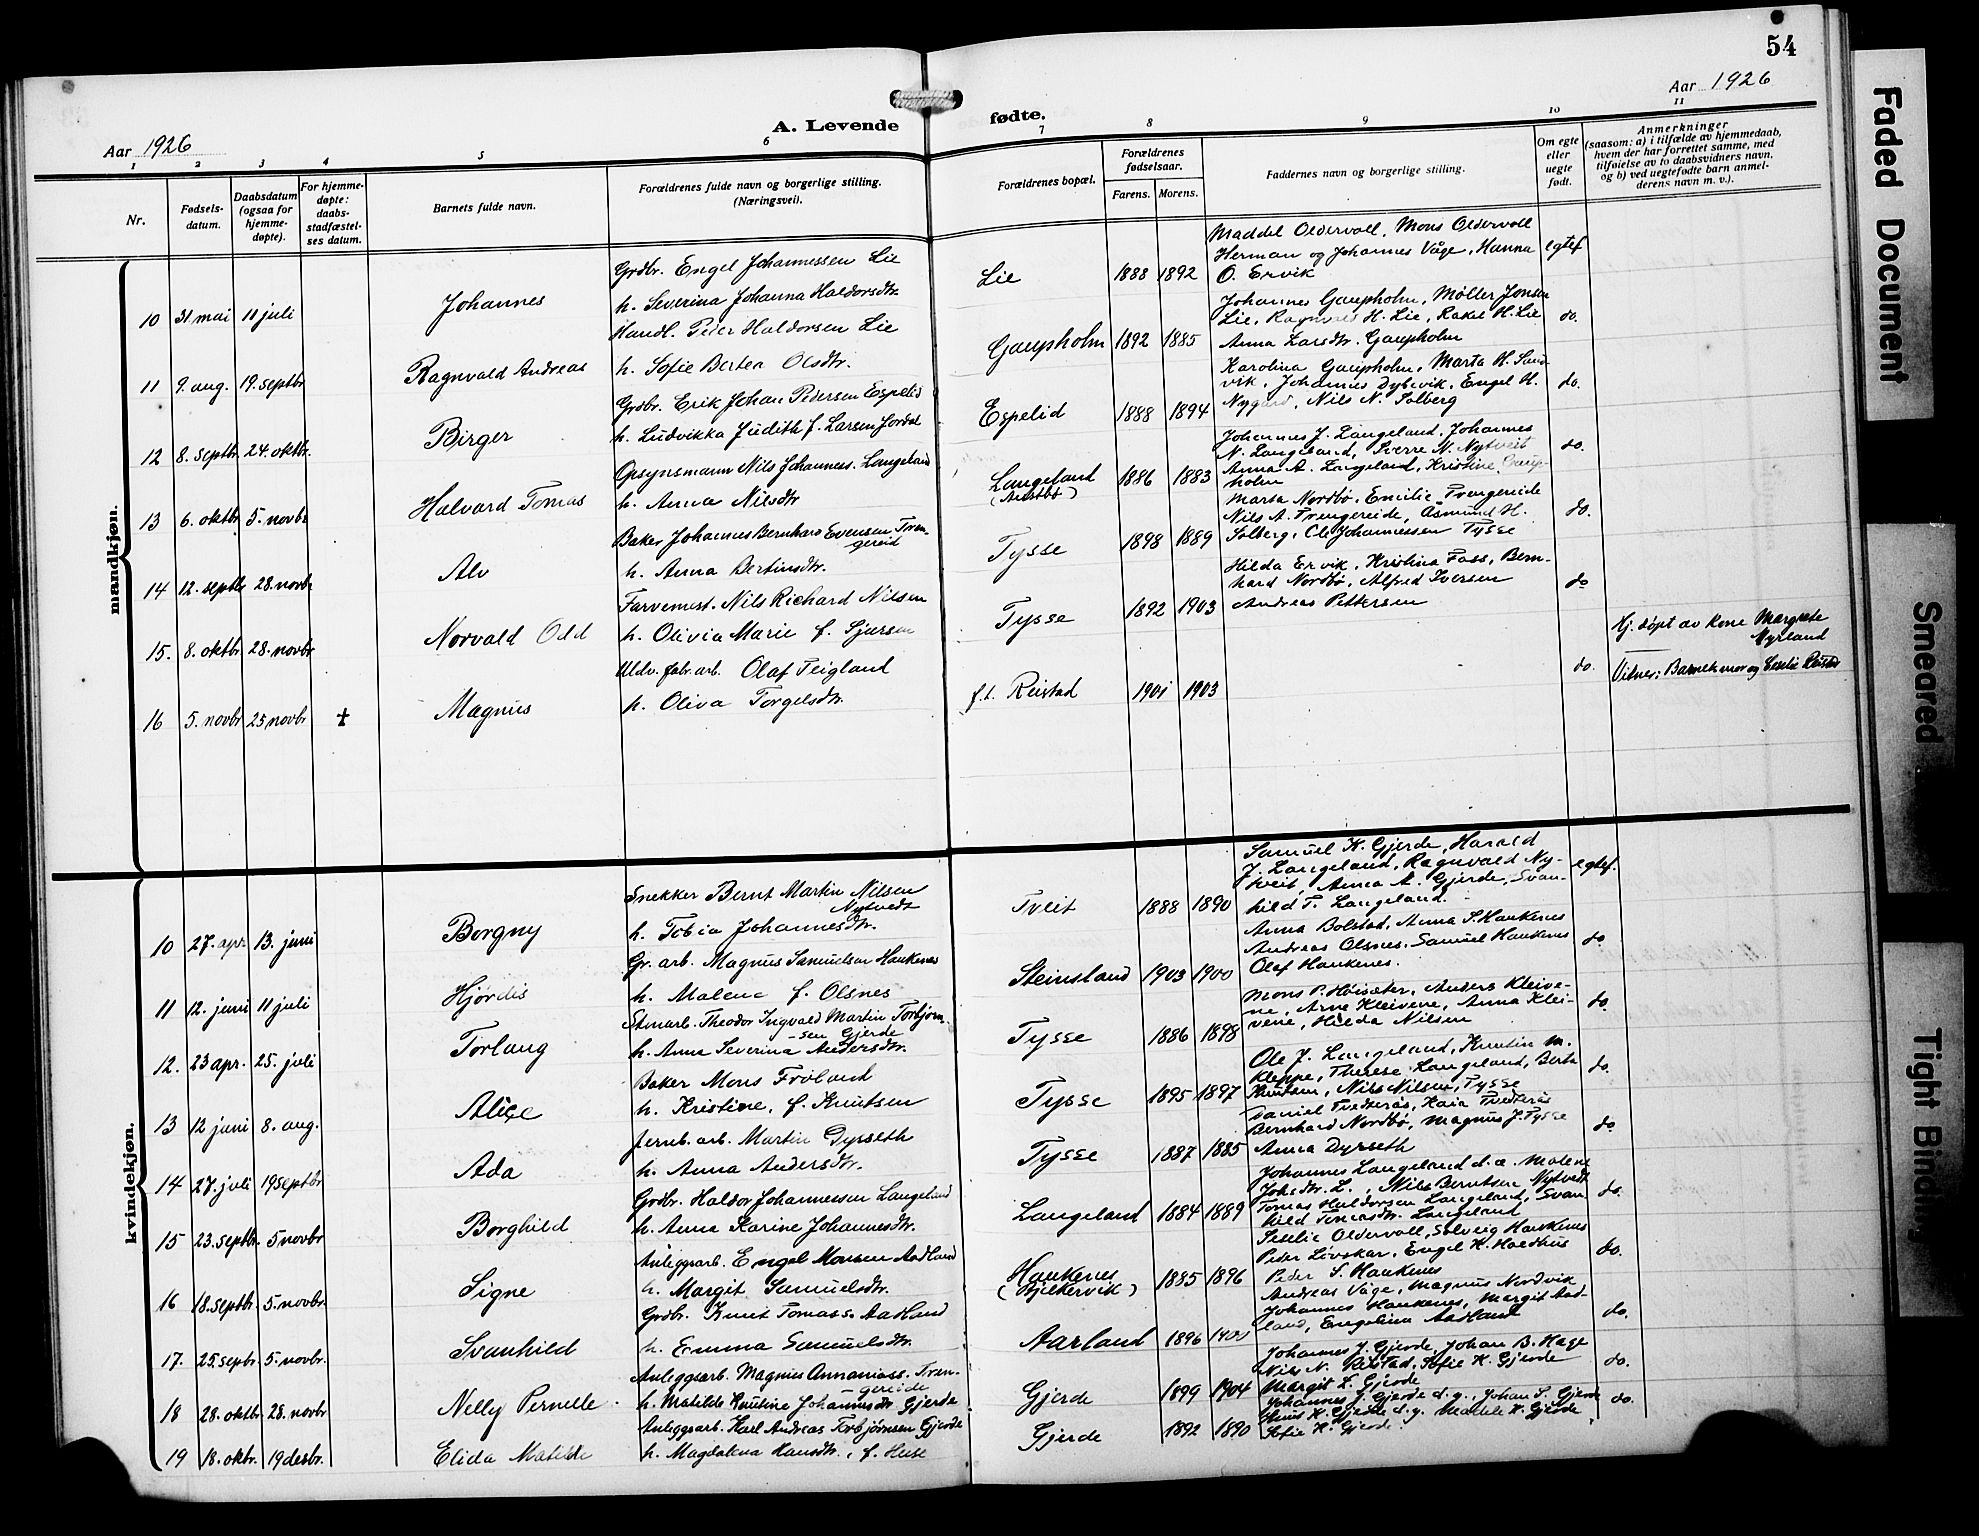 54
Aar 1926
A. Levende
fødte.
Aar 1926
1 2 3 4 5 6 7 8 9 10 11
Nr.
Fødsels-
datum.
Daabsdatum
(ogsaa for
hjemme-
døpte).
For hjemme-
døpte:
daabs-
stadfæstel-
ses datum.
Barnets fulde navn.
Forældrenes fulde navn og borgerlige stilling.
(Næringsvei).
Forældrenes bopæl.
Forældrenes
fødselsaar.
Farens. Morens.
Faddernes navn og borgerlige stilling.
Om egte
eller
uegte
født.
Anmerkninger
(saasom: a) i tilfælde av hjemmedaab,
hvem der har forrettet samme, med
tilføielse av to daabsvidners navn,
og b) ved uegtefødte barn anmel-
derens navn m. v.).
mandkjøn.
10 31 mai 11 juli Johannes
Grdbr. Engel Johannessen Lie
h. Severina Johanna Haldorsdtr.
Lie 1888 1892
Maddel Oldervoll, Mons Oldervoll
Herman og Johannes Våge, Hanna
O. Ervik
egtef
11 9. aug. 19. septbr Ragnvald Andreas
Handl. Peder Haldorsen Lie
h. Sofie Bertea Olsdtr.
Gaupholm 1892 1885
Johannes Gaupholm, Møller Jonsen
Lie, Ragnvald H. Lie, Rakel H. Lie
Anna Larsdtr. Gaupholm
do.
12 8. septbr 24. oktbr. Birger
Grdbr. Erik Johan Pedersen Espelid
h. Ludvikka Judith f. Larsen Jordal
Espelid 1888 1894
Karolina Gaupholm, Marta H. Sand
vik, Johannes Dybvik, Engel H.
Nygård, Nils N. Solberg
do.
13 6. oktbr 5. novbr Halvard Tomas
Opsynsmann Nils Johanness. Langeland
h. Anna Nilsdtr
Langeland
(Austbø)
1886 1883
Johannes J. Langeland, Johannes
N. Langeland, Sverre N. Nytveit
Anna A. Langeland, Kristine Gaup-
holm
do.
14 12. septbr 28. novbr Alv
Baker Johannes Bernhard Evensen Tren-
gereid
h. Anna Bertinsdtr.
Tysse 1898 1889
Marta Nordbø, Emilie Trengereide
Nils A. Trengereide, Asmund H.
Solberg, Ole Johannessen Tysse
do.
15. 8. oktbr. 28. novbr Norvald Odd
Farvemest. Nils Richard Nilsen
h. Olivia Marie f. Sjursen
Tysse 1892 1903
Hilda Ervik, Kristina Foss, Bern-
hard Nordbø, Alfred Iversen
Andreas Pettersen
do
16 5. novbr 25 novbr + Magnus
Uldv. fabr. arb. Olaf Teigland
h. Oliva Torgelsdtr.
f.t. Reistad 1901 1903
do.
Hj. døpt av kone Margrete
Myrland
Vitner: Barnets mor og Seselie Reistad
kvindekjøn.
10 27. apr. 13. juni Borgny
Snekker Bernt Martin Nilsen
Nytvedt
h. Tobia Johannesdtr.
Tveit 1888 1890
Samuel K. Gjerde, Harald
J. Langeland, Ragnvald Ny-
tveit, Anna A. Gjerde, Svan-
hild T. Langeland.
egtef.
11 12. juni 11 juli Hjørdis
Gr. arb. Magnus Samuelsen Haukenes
h. Malene f. Olsnes
Steinsland 1903 1900
Anna Bolstad, Anna S. Haukenes
Andreas Olsnes, Samuel Haukenes
Olaf Haukenes.
do
12. 23 apr. 25. juli Torlaug
Stmarb. Theodor Ingvald Martin Torbjørn-
sen Gjerde
h. Anna Severina Andersdtr.
Tysse 1886 1898
Mons P. Høisæter, Anders Kleive-
ne, Arne Kleivene, Anna Klei-
vene, Hilda Nilsen
do.
13 12 juni 8. aug. Alice
Baker Mons Frøland
h. Kristine, f. Knutsen
Tysse 1895 1897
Ole J. Langeland, Knutin M.
Kleppe, Therese Langeland, Berta
Knutsen, Nils Nilsen, Tysse
do.
14 27. juli 19 septbr Ada
Jernb. arb. Martin Dyrseth
h. Anna Andersdtr.
Tysse 1887 1885
Daniel Tvedterås, Kaia Tvedterås
Bernhard Nordbø, Magnus J. Tysse
Anna Dyrseth
do.
15 23. septbr. 5 novbr Borghild
Grdbr. Haldor Johannessen Langeland
h. Anna Karine Johannesdtr.
Langeland 1884 1889
Johannes Langeland d. e. Malene
Johsdtr. L., Nils Berntsen Nytvedt
Tomas Haldorsen Langeland, Svan
hild Tomasdtr. Langeland
do.
16 18. septbr. 5. novbr. Signe
Anleggsarb. Engel Monsen Aadland
h. Margit Samuelsdtr.
Haukenes
(Bjelkervik)
1885 1896
Seselie Oldervoll, Solveig Haukenes
Peder Løvskar, Engel H. Hoedhus
Peder S. Haukenes
do.
17. 25. septbr. 5. novbr. Svanhild
Grdbr. Knut Tomass. Aadland
h. Emma Samuelsdtr.
Aarland 1896 1900
Andreas Våge, Magnus Nordvik
Johannes Haukenes, Margit Aad-
land, Engelina Aadland
do.
18 28. oktbr. 28. novbr Nelly Pernelle
Anleggsarb. Magnus Annaniass. Tren-
gereide
h. Matilde Knutine Johannesdtr Gjerde
Gjerde 1899 1904
Johannes J. Gjerde, Johan B. Hage
Nils N. Reistad, Sofie K. Gjerde
Margit L. Gjerde
do.
19 18. oktbr. 19 desbr. Elida Matilde
Anleggsarb. Karl Andreas Torbjørnsen Gjerde
h. Magdalena Hansdtr., f. Huse
Gjerde 1892 1890
Johannes J. Gjerde d. y., Johan S. Gjerde
K. Gjerde d. y. Matilde K. Gjerde
Sofie K. Gjerde.
do.
Faded Document
Smeared
Tight Binding